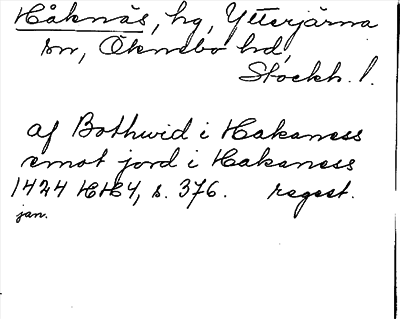 Håknäs, hg, Ytterjärna
sn, Öknebo hd,
Stockh. l.
af Bothvid i Hakaness
emot jord i Hakaness
1424 HH4, s. 376. regest.
jan.